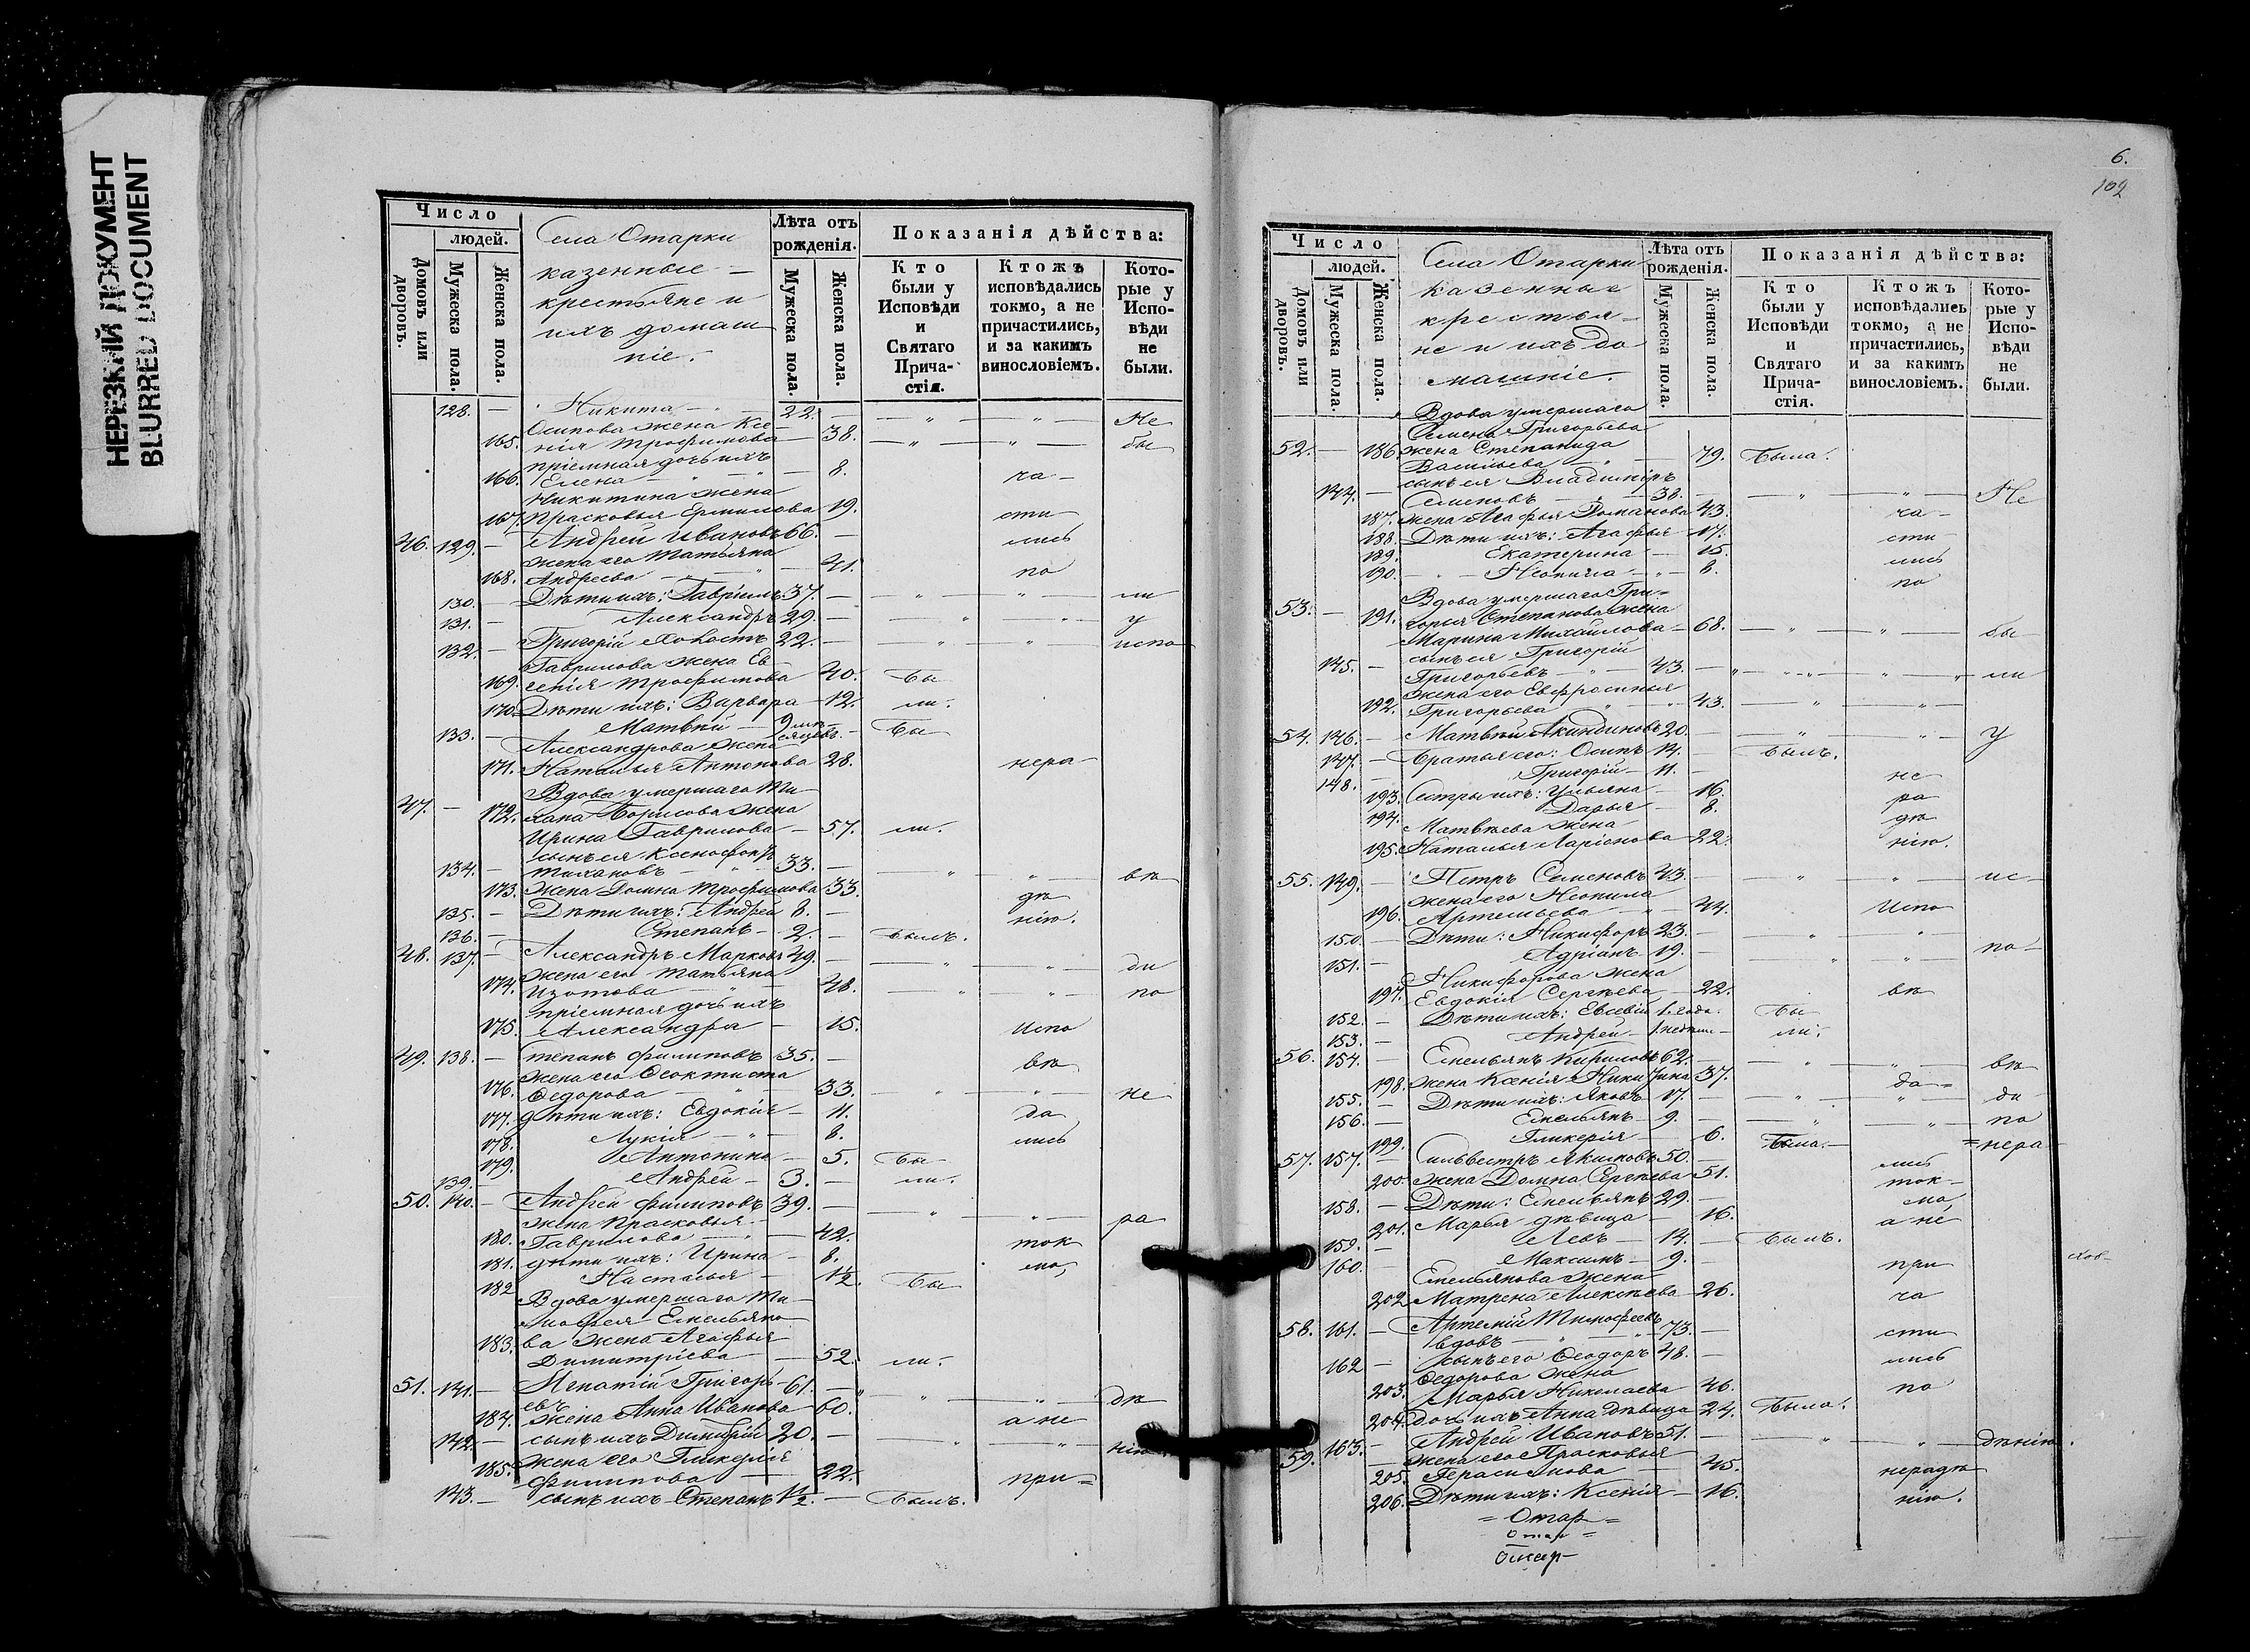 НЕРЕЗКИЙ ДОКУМЕНТ
BLURRED DOCUMENT
Число
людей.
Домовъ или дворовъ.
Мужеска пола.
Женска пола.
Села Отарки
казенные
крестьяне и
ихъ домаш
ніе.
Лѣта отъ рожденія.
Мужеска пола.
Женска пола.
Показанія дѣйства:
Кто были у Исповѣди и Святаго Прича-стія.
Ктожъ исповѣдались токмо, а не причастились, и за какимъ винословіемъ.
Кото-рые у Испо-вѣди не были.
128. — Никита — 22. — " — " — Не
Осипова жена Ксе-
165. нія Трофимова — 38. — " — " — бы
пріемная дочь ихъ
166. Елена — " — 8. ча-
Никитина жена
167. Прасковья Ермилова 19. сти
46. 129. — Андрей Ивановъ 66. — лись
жена его Татьяна
168. Андреева — " — 41. по
130. — Дѣти ихъ: Гавріилъ 37. — " — " — ли
131. — Александръ 29. — " — " — у
132. — Григорій Холостъ 22. — " — " — испо
Гаврилова жена Ев-
169. генія Трофимова 40. бы
170. Дѣти ихъ: Варвара — 12. ли.
133. — Матвѣй — 9 мѣ-сяцевъ. — бы
Александрова жена
171. Наталья Антонова 28. нера-
Вдова умершаго Ти-
47. — 172. хана Борисова жена
Ирина Гаврилова — 57. ли.
сынъ ея Ксенофонтъ
134. — Тихановъ — " — 33. — " — " — вѣ
173. жена Домна Трофимова 33. дѣ
135. — Дѣти ихъ: Андрей 8. — нію.
136. — Степанъ — 2. — былъ.
48. 137. — Александръ Марковъ 49. — " — " — ди
жена его Татьяна
174. Изотова — " — 48. — " — " — по
пріемная дочь ихъ
175. Александра — 15. Испо
49. 138. — Степанъ Филиповъ 35. — вѣ
жена его Феоктиста
176. Федорова — " — 33. — " — " — не
177. дѣти ихъ: Евдокія — 11. да
178. Лукія — " — 8. лись
179. Антонина — 5. бы-
139. — Андрей — 3. — ли.
50. 140. — Андрей Филиповъ 39. — " — " — ра
жена Прасковья
180. Гаврилова — " — 42. ток
181. дѣти ихъ: Ирина — 8. мо,
182 Настасья — 1½. бы
Вдова умершаго Ти-
мофея Емельяно
183. ва жена Агафья
Димитріева — 52. ли.
51. 141. — Игнатій Григорь- 61. — " — " — дѣ
евъ
184. жена Анна Иванова 60. а не
142. — сынъ ихъ Димитрій 20. — " — " — нію
жена его Гликерія
185. Филипова — 22. при=
143. — сынъ ихъ Степанъ 1½. — былъ.
6.
102
Число
людей.
Домовъ или дворовъ.
Мужеска пола.
Женска пола.
Села Отарки
казенные
крестья=
не и ихъ до
машніе.
Лѣта отъ рожденія.
Мужеска пола.
Женска пола.
Показанія дѣйства:
Кто были у Исповѣди и Святаго Прича-стія.
Ктожъ исповѣдались токмо, а не причастились, и за какимъ винословіемъ.
Кото-рые у Испо-вѣди не были.
Вдова умершаго
Семена Григорьева
52. — 186. жена Степанида
Васильева — " — 79. была.
сынъ ея Владиміръ
144. — Семеновъ — " — 38. — " — " — Не
187. жена Агафья Романова 43. ча-
188. Дѣти ихъ: Агафья — 17. сти-
189. Екатерина — 15. лись
190. — " — Неонила — " — 8. по
Вдова умершаго Гри=
53. — 191. горья Степанова жена
Марина Михайлова — 68. — " — " — бы
сынъ ея Григорій
145. — Григорьевъ — " — 43. — " — " — ли
жена его Евфросинья
192. Григорьева — " — 43. — " — "
54. 146. — Матвѣй Акиндиновъ 20. — " — " — у
147. — братья его: Осипъ 14. — былъ.
148. — Григорій — 11. — не
193. Сестры ихъ: Ульяна — 16. ра
194. Дарья — 8. дѣ
Матвѣева жена
195. Наталья Ларіонова 22. нію.
55. 149. — Петръ Семеновъ 43. — " — " — ис-
жена его Неонила
196. Артемьева — " — 44. Испо
150. — Дѣти: Никифоръ 23. — " — "
151. — Адріанъ — 19. — " — " — по-
Никифорова жена
197. Евдокія Сергѣева — 22. вѣ
152. — Дѣти ихъ: Евсевій 1. года. бы
153. — Андрей — 1. недѣли — ли.
56. 154. — Емельянъ Кириловъ 62. — " — " — вѣ
198. жена Ксенія Никитина 37. да=
155. — Дѣти ихъ: Яковъ — 17. — " — " — ди
156. — Емельянъ — 9. — " — " — по
199. Гликерія — 6. была. — =нера
57. 157. — Сильвестръ Якимовъ 50. — лись
200 жена Домна Сергѣева 51. ток-
158. — Дѣти: Емельянъ 29 — мо,
201. Марья дѣвица — 16. а не
159. — Левъ — 14. — былъ.
160. — Максимъ — 9. — при
Емельянова жена
202 Матрена Алексѣева — 26. ча
58. 161. — Артемій Тимофеевъ
вдовъ — " — 73. — сти
162 — сынъ его Феодоръ 48. — лись
Федорова жена
203. Марья Николаева 46. по
204. дочь ихъ Анна дѣвица 24. была.
59. 163. — Андрей Ивановъ 51. — " — " — дѣнію.
жена его Прасковья
205. Герасимова — 45. нерадѣ
206. Дѣти ихъ: Ксенія — 16. нію.
= Отар =
Отар =
Отар-